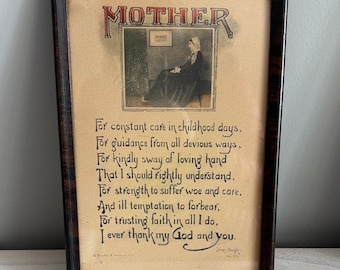 MOTHER
For constant care in childhood days,
For guidance from all devious ways,
For kindly sway of loving hand
That I should rightly understand,
For strength to suffer woe and care,
And ill temptation to forbear,
For trusting faith in all I do,
I ever thank my God and you.